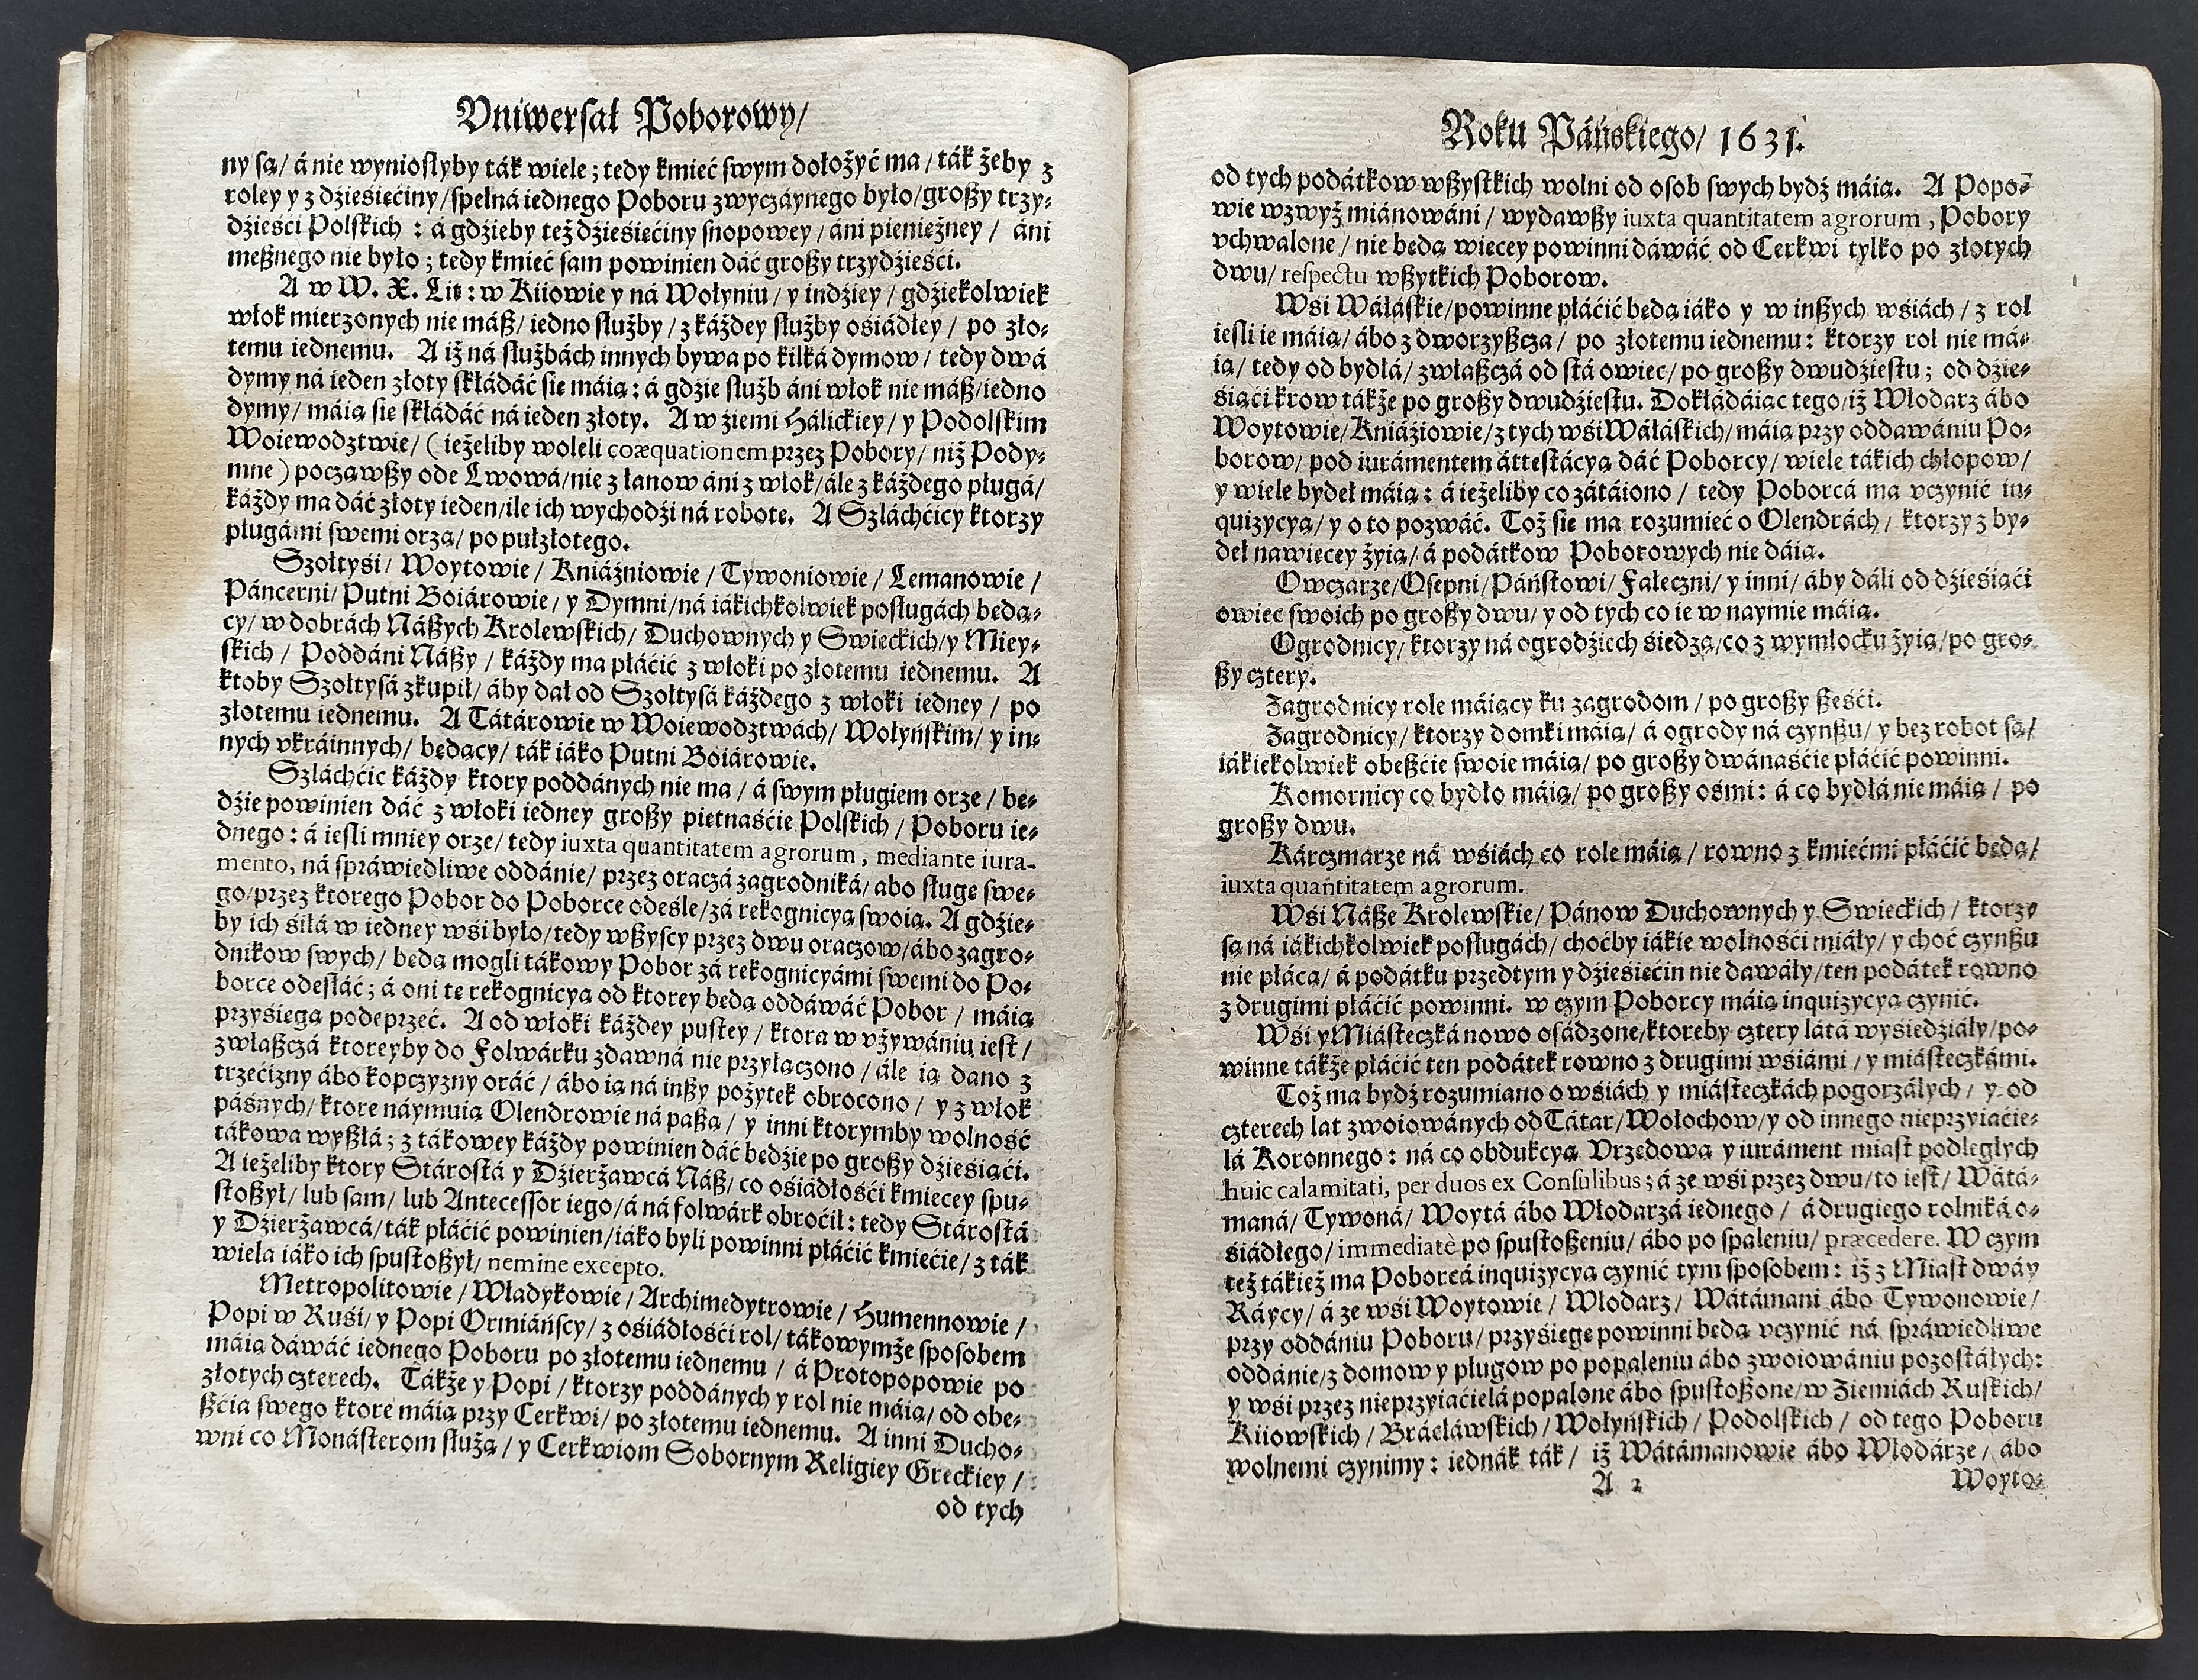 Vniwersał Poborowy/
ny są/ á nie wyniosłyby ták wiele; tedy kmieć swym dołożyć ma/ ták żeby z
roley y z dźieśiećiny/ spełná iednego Poboru zwyczáynego było/ groszy trzy-
dźieśći Polskich : á gdźieby też dźieśiećiny snopowey/ áni pieniężney/ áni
mesznego nie było; tedy kmieć sam powinien dáć groszy trzydźieśći.
A w W. X. Lit: w Kiiowie y ná Wołyniu/ y indźiey/ gdźiekolwiek
włok mierzonych nie mász/ iedno służby/ z káżdey służby ośiádłey/ po zło-
temu iednemu. A iż ná służbách innych bywa po kilká dymow/ tedy dwá
dymy ná ieden złoty skłádáć sie máią: á gdzie służb áni włok nie mász/ iedno
dymy/ máią sie skłádáć ná ieden złoty. A w źiemi Hálickiey/ y Podolskim
Woiewodztwie/ ( ieżeliby woleli coæquationem przez Pobory/ niż Pody-
mne ) począwszy ode Lwowá/ nie z łanow áni z włok/ ále z káżdego pługá/
káżdy ma dáć złoty ieden/ ile ich wychodźi ná robote. A Szláchćicy ktorzy
pługámi swemi orzą/ po pułzłotego.
Szołtyśi/ Woytowie/ Kniáźniowie/ Tywoniowie/ Lemanowie/
Páncerni/ Putni Boiárowie/ y Dymni/ ná iákichkolwiek posługách będą-
cy/ w dobrách Nászych Krolewskich/ Duchownych y Swieckich/ y Miey-
skich/ Poddáni Nászy/ káżdy ma płáćić z włoki po złotemu iednemu. A
ktoby Szołtysá zkupił/ áby dał od Szołtysá káżdego z włoki iedney/ po
złotemu iednemu. A Tátárowie w Woiewodztwách/ Wołyńskim/ y in-
nych vkráinnych/ będący/ ták iáko Putni Boiárowie.
Szláchćic káżdy ktory poddánych nie ma/ á swym pługiem orze/ bę-
dźie powinien dáć z włoki iedney groszy piętnaśćie Polskich/ Poboru ie-
dnego: á iesli mniey orze/ tedy iuxta quantitatem agrorum, mediante iura-
mento, ná spráwiedliwe oddánie/ przez oraczá zagrodniká/ abo sługę swe-
go/ przez ktorego Pobor do Poborce odeśle/ zá rekognicyą swoią. A gdźie-
by ich śiłá w iedney wśi było/ tedy wszyscy przez dwu oraczow/ ábo zagro-
dnikow swych/ będą mogli tákowy Pobor zá rekognicyámi swemi do Po-
borce odesłáć; á oni te rekognicyą od ktorey będą oddáwáć Pobor/ máią
przyśięgą podeprzeć. A od włoki káżdey pustey/ ktora w vżywániu iest/
zwłaszczá ktoreyby do Folwárku zdawná nie przyłączono/ ále ią dano z
trzećizny ábo kopczyzny oráć/ ábo ią ná inszy pożytek obrocono/ y z włok
páśnych/ ktore náymuią Olendrowie ná paszą/ y inni ktorymby wolność
tákowa wyszłá; z tákowey káżdy powinien dáć będźie po groszy dźieśiąći.
A ieżeliby ktory Stárostá y Dźierżawcá Nász/ co ośiádłośći kmiecey spu-
stoszył/ lub sam/ lub Antecessor iego/ á ná folwárk obroćił: tedy Stárostá
y Dźierżawcá/ ták płáćić powinien/ iáko byli powinni płáćić kmiećie/ z ták
wiela iáko ich spustoszył/ nemine excepto.
Metropolitowie/ Władykowie/ Archimedytrowie/ Humennowie/
Popi w Ruśi/ y Popi Ormiáńscy/ z ośiádłośći rol/ tákowymże sposobem
máią dáwáć iednego Poboru po złotemu iednemu/ á Protopopowie po
złotych czterech. Tákże y Popi/ ktorzy poddánych y rol nie máią/ od obe-
szćia swego ktore máią przy Cerkwi/ po złotemu iednemu. A inni Ducho-
wni co Monásterom służą/ y Cerkwiom Sobornym Religiey Greckiey/
od tych
Roku Páńskiego/ 1631.
od tych podátkow wszystkich wolni od osob swych bydź máią. A Popo-
wie wzwyż miánowáni/ wydawszy iuxta quantitatem agrorum, Pobory
vchwalone/ nie będą wiecey powinni dáwáć od Cerkwi tylko po złotych
dwu/ respectu wszytkich Poborow.
Wsi Wáłáskie/ powinne płáćić będą iáko y w inszych wśiách/ z rol
iesli ie máią/ ábo z dworzyszcza/ po złotemu iednemu: ktorzy rol nie má-
ią/ tedy od bydłá/ zwłaszczá od stá owiec/ po groszy dwudźiestu; od dźie-
śiąći krow tákże po groszy dwudźiestu. Dokłádáiąc tego/ iż Włodarz ábo
Woytowie/ Kniáźiowie/ z tych wśi Wáłáskich/ máią przy oddawániu Po-
borow/ pod iurámentem áttestácyą dáć Poborcy/ wiele tákich chłopow/
y wiele bydeł máią: á ieżeliby co zátáiono/ tedy Poborcá ma vczynić in-
quizycyą/ y o to pozwáć. Toż sie ma rozumieć o Olendrách/ ktorzy z by-
deł nawięcey żyią/ á podátkow Poborowych nie dáią.
Owczarze/ Osepni/ Páństowi/ Faleczni/ y inni/ áby dáli od dźieśiąći
owiec swoich po groszy dwu/ y od tych co ie w naymie máią.
Ogrodnicy/ ktorzy ná ogrodźiech śiedzą/ co z wymłocku żyią/ po gro-
szy cztery.
Zagrodnicy role máiący ku zagrodom/ po groszy sześći.
Zagrodnicy/ ktorzy domki máią/ á ogrody ná czynszu/ y bez robot są/
iákiekolwiek obeszćie swoie máią/ po groszy dwánaśćie płáćić powinni.
Komornicy co bydło máią/ po groszy ośmi: á co bydłá nie máią/ po
groszy dwu.
Kárczmarze ná wśiách co role máią/ rowno z kmiećmi płáćić będą/
iuxta quantitatem agrorum.
Wśi Násze Krolewskie/ Pánow Duchownych y Swieckich/ ktorzy
są ná iákichkolwiek posługách/ choćby iákie wolnośći miáły/ y choć czynszu
nie płácą/ á podátku przedtym y dźieśiećin nie dawáły/ ten podátek rowno
z drugimi płáćić powinni. w czym Poborcy máią inquizycyą czynić.
Wśi y Miásteczká nowo osádzone/ ktoreby cztery látá wysiedźiáły/ po-
winne tákże płáćić ten podátek rowno z drugimi wśiámi/ y miásteczkámi.
Toż ma bydź rozumiano o wśiách y miásteczkách pogorzáłych/ y od
czterech lat zwoiowánych od Tátar/ Wołochow/ y od innego nieprzyiaćie-
lá Koronnego: ná co obdukcyą Vrzędową y iuráment miast podległych
huic calamitati, per duos ex Consulibus; á ze wśi przez dwu/ to iest/ Wátá-
maná/ Tywoná/ Woytá ábo Włodarzá iednego/ á drugiego rolniká o-
śiádłego/ immediatè po spustoszeniu/ ábo po spaleniu/ præcedere. W czym
też tákież ma Poborcá inquizycyą czynić tym sposobem: iż z Miast dwáy
Ráycy/ á ze wśi Woytowie/ Włodarz/ Wátámani ábo Tywonowie/
przy oddániu Poboru/ przyśięgę powinni będą vczynić ná spráwiedliwe
oddánie/ z domow y pługow po popaleniu ábo zwoiowániu pozostáłych:
y wśi przez nieprzyiaćielá popalone ábo spustoszone/ w Ziemiách Ruskich/
Kiiowskich/ Brácłáwskich/ Wołyńskich/ Podolskich/ od tego Poboru
wolnemi czynimy: iednák ták/ iż Wátámanowie ábo Włodárze/ ábo
A 2 Woyto-